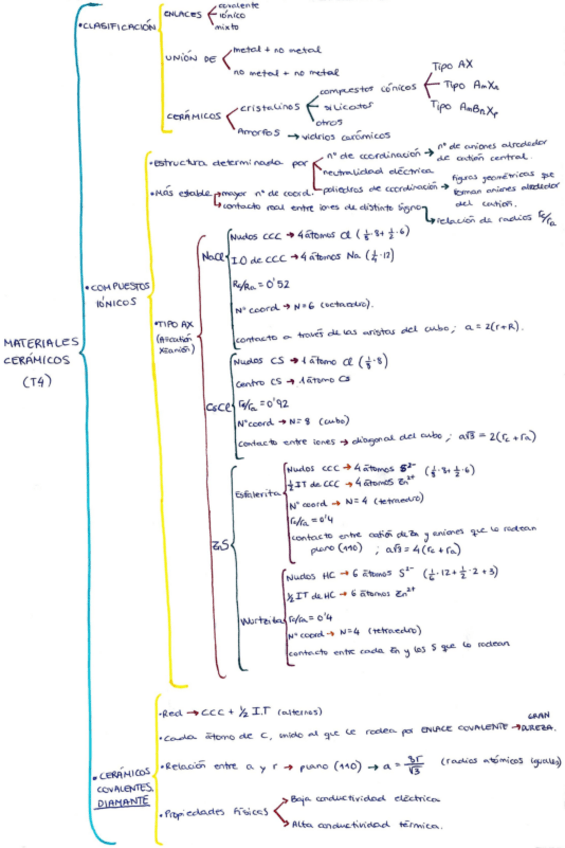 MATERIALES
CERÁMICOS
(T4)
•CLASIFICACIÓN
ENLACES
covalente
iónico
mixto
UNIÓN DE
metal + no metal
no metal + no metal
CERÁMICOS
cristalinos
compuestos iónicos
Tipo AX
Tipo AmXn
Tipo AmBnXp
silicatos
otros
Amorfos → vidrios cerámicos
•COMPUESTOS
IÓNICOS
•Estructura determinada por
nº de coordinación → nº de aniones alrededor
de catión central.
neutralidad eléctrica
poliedros de coordinación → figuras geométricas que
forman aniones alrededor
del catión.
•Más estable
mayor nº de coord.
contacto real entre iones de distinto signo
relación de radios rc/ra
•TIPO AX
(A=catión
X=anión)
NaCl
Nudos CCC → 4 átomos Cl (1/8·8+1/2·6)
I.O de CCC → 4 átomos Na (1/4·12)
Rc/Ra = 0'52
Nº coord → N=6 (octaedro).
contacto a través de las aristas del cubo; a = 2(r+R).
CsCl
Nudos CS → 1 átomo Cl (1/8·8)
Centro CS → 1 átomo Cs
rc/ra = 0'92
Nº coord → N=8 (cubo)
contacto entre iones → diagonal del cubo; a√3 = 2(rc+ra)
ZnS
Esfalerita
Nudos CCC → 4 átomos S²⁻ (1/8·8+1/2·6)
1/2 IT de CCC → 4 átomos Zn²⁺
Nº coord → N=4 (tetraedro)
rc/ra = 0'4
contacto entre catión de Zn y aniones que lo rodean
plano (110) ; a√3 = 4(rc+ra)
Wurtzita
Nudos HC → 6 átomos S²⁻ (1/6·12+1/2·2+3)
1/2 IT de HC → 6 átomos Zn²⁺
rc/ra = 0'4
Nº coord → N=4 (tetraedro)
contacto entre cada Zn y los S que lo rodean
•CERÁMICOS
COVALENTES.
DIAMANTE
•Red → CCC + 1/2 I.T (alternos)
•Cada átomo de C, unido al que le rodea por ENLACE COVALENTE → GRAN
DUREZA.
•Relación entre a y r → plano (110) → a = 8r/√3 (radios atómicos iguales)
•Propiedades físicas
Baja conductividad eléctrica
Alta conductividad térmica.